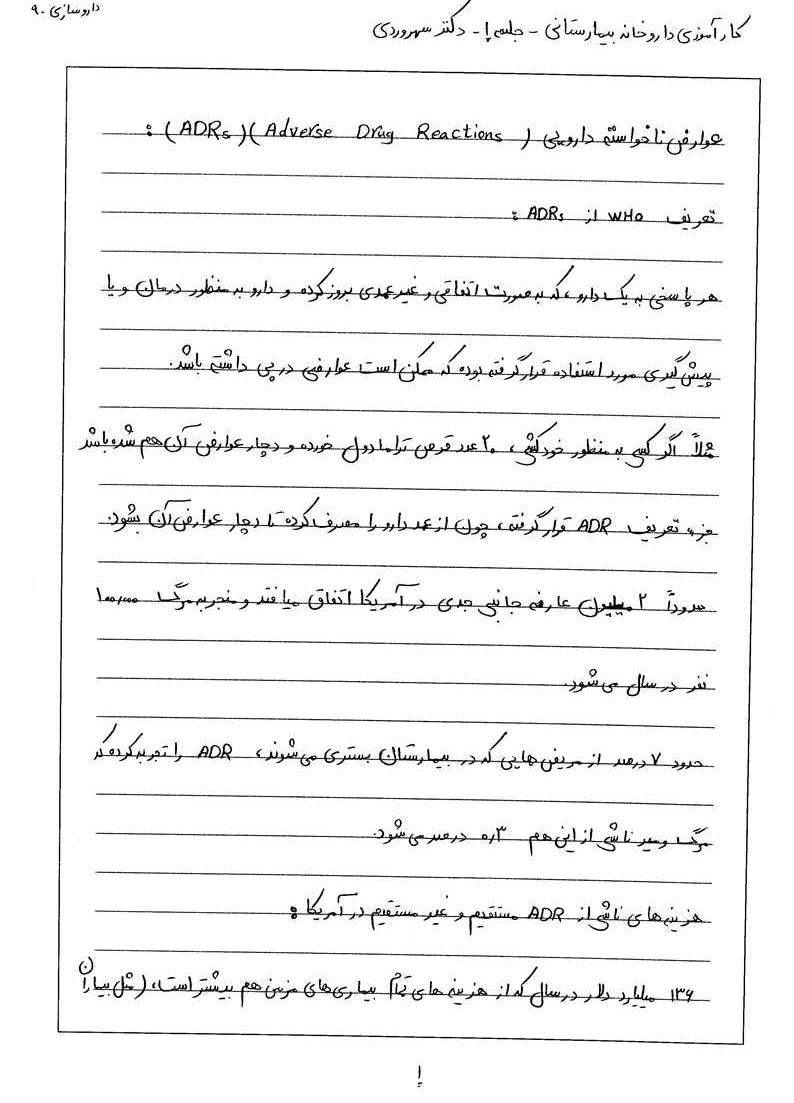 داروسازی ۹۰
کارآموزی داروخانه بیمارستانی - جلسه ۱ - دکتر سهروردی
عوارض ناخواسته دارویی (Adverse Drug Reactions)(ADRs):
تعریف WHO از ADRs:
هر پاسخی به یک دارو، که به صورت اتفاقی و غیرعمدی بروز کرده و دارو به منظور درمان و یا
پیش‌گیری مورد استفاده قرار گرفته بوده که ممکن است عوارضی در پی داشته باشد.
مثلاً اگر کسی به منظور خودکشی، ۲۰ عدد قرص ترامادول خورده و دچار عوارض آن هم شده باشد
جزء تعریف ADR قرار گرفته، چون از عمد دارو را مصرف کرده تا دچار عوارض آن بشود.
حدوداً ۲ میلیون عارضه جانبی جدی در آمریکا اتفاق میافتد و منجر به مرگ ۱۰۰,۰۰۰
نفر در سال می‌شود.
حدود ۷ درصد از مریض‌هایی که در بیمارستان بستری می‌شوند، ADR را تجربه کرده که
مرگ و میر ناشی از این هم ۰٫۳ درصد می‌شود.
هزینه‌های ناشی از ADR مستقیم و غیر مستقیم در آمریکا:
۱۳۶ میلیارد دلار در سال که از هزینه های تمام بیماری‌های مزمن هم بیشتر است، (مثل بیماران
۱